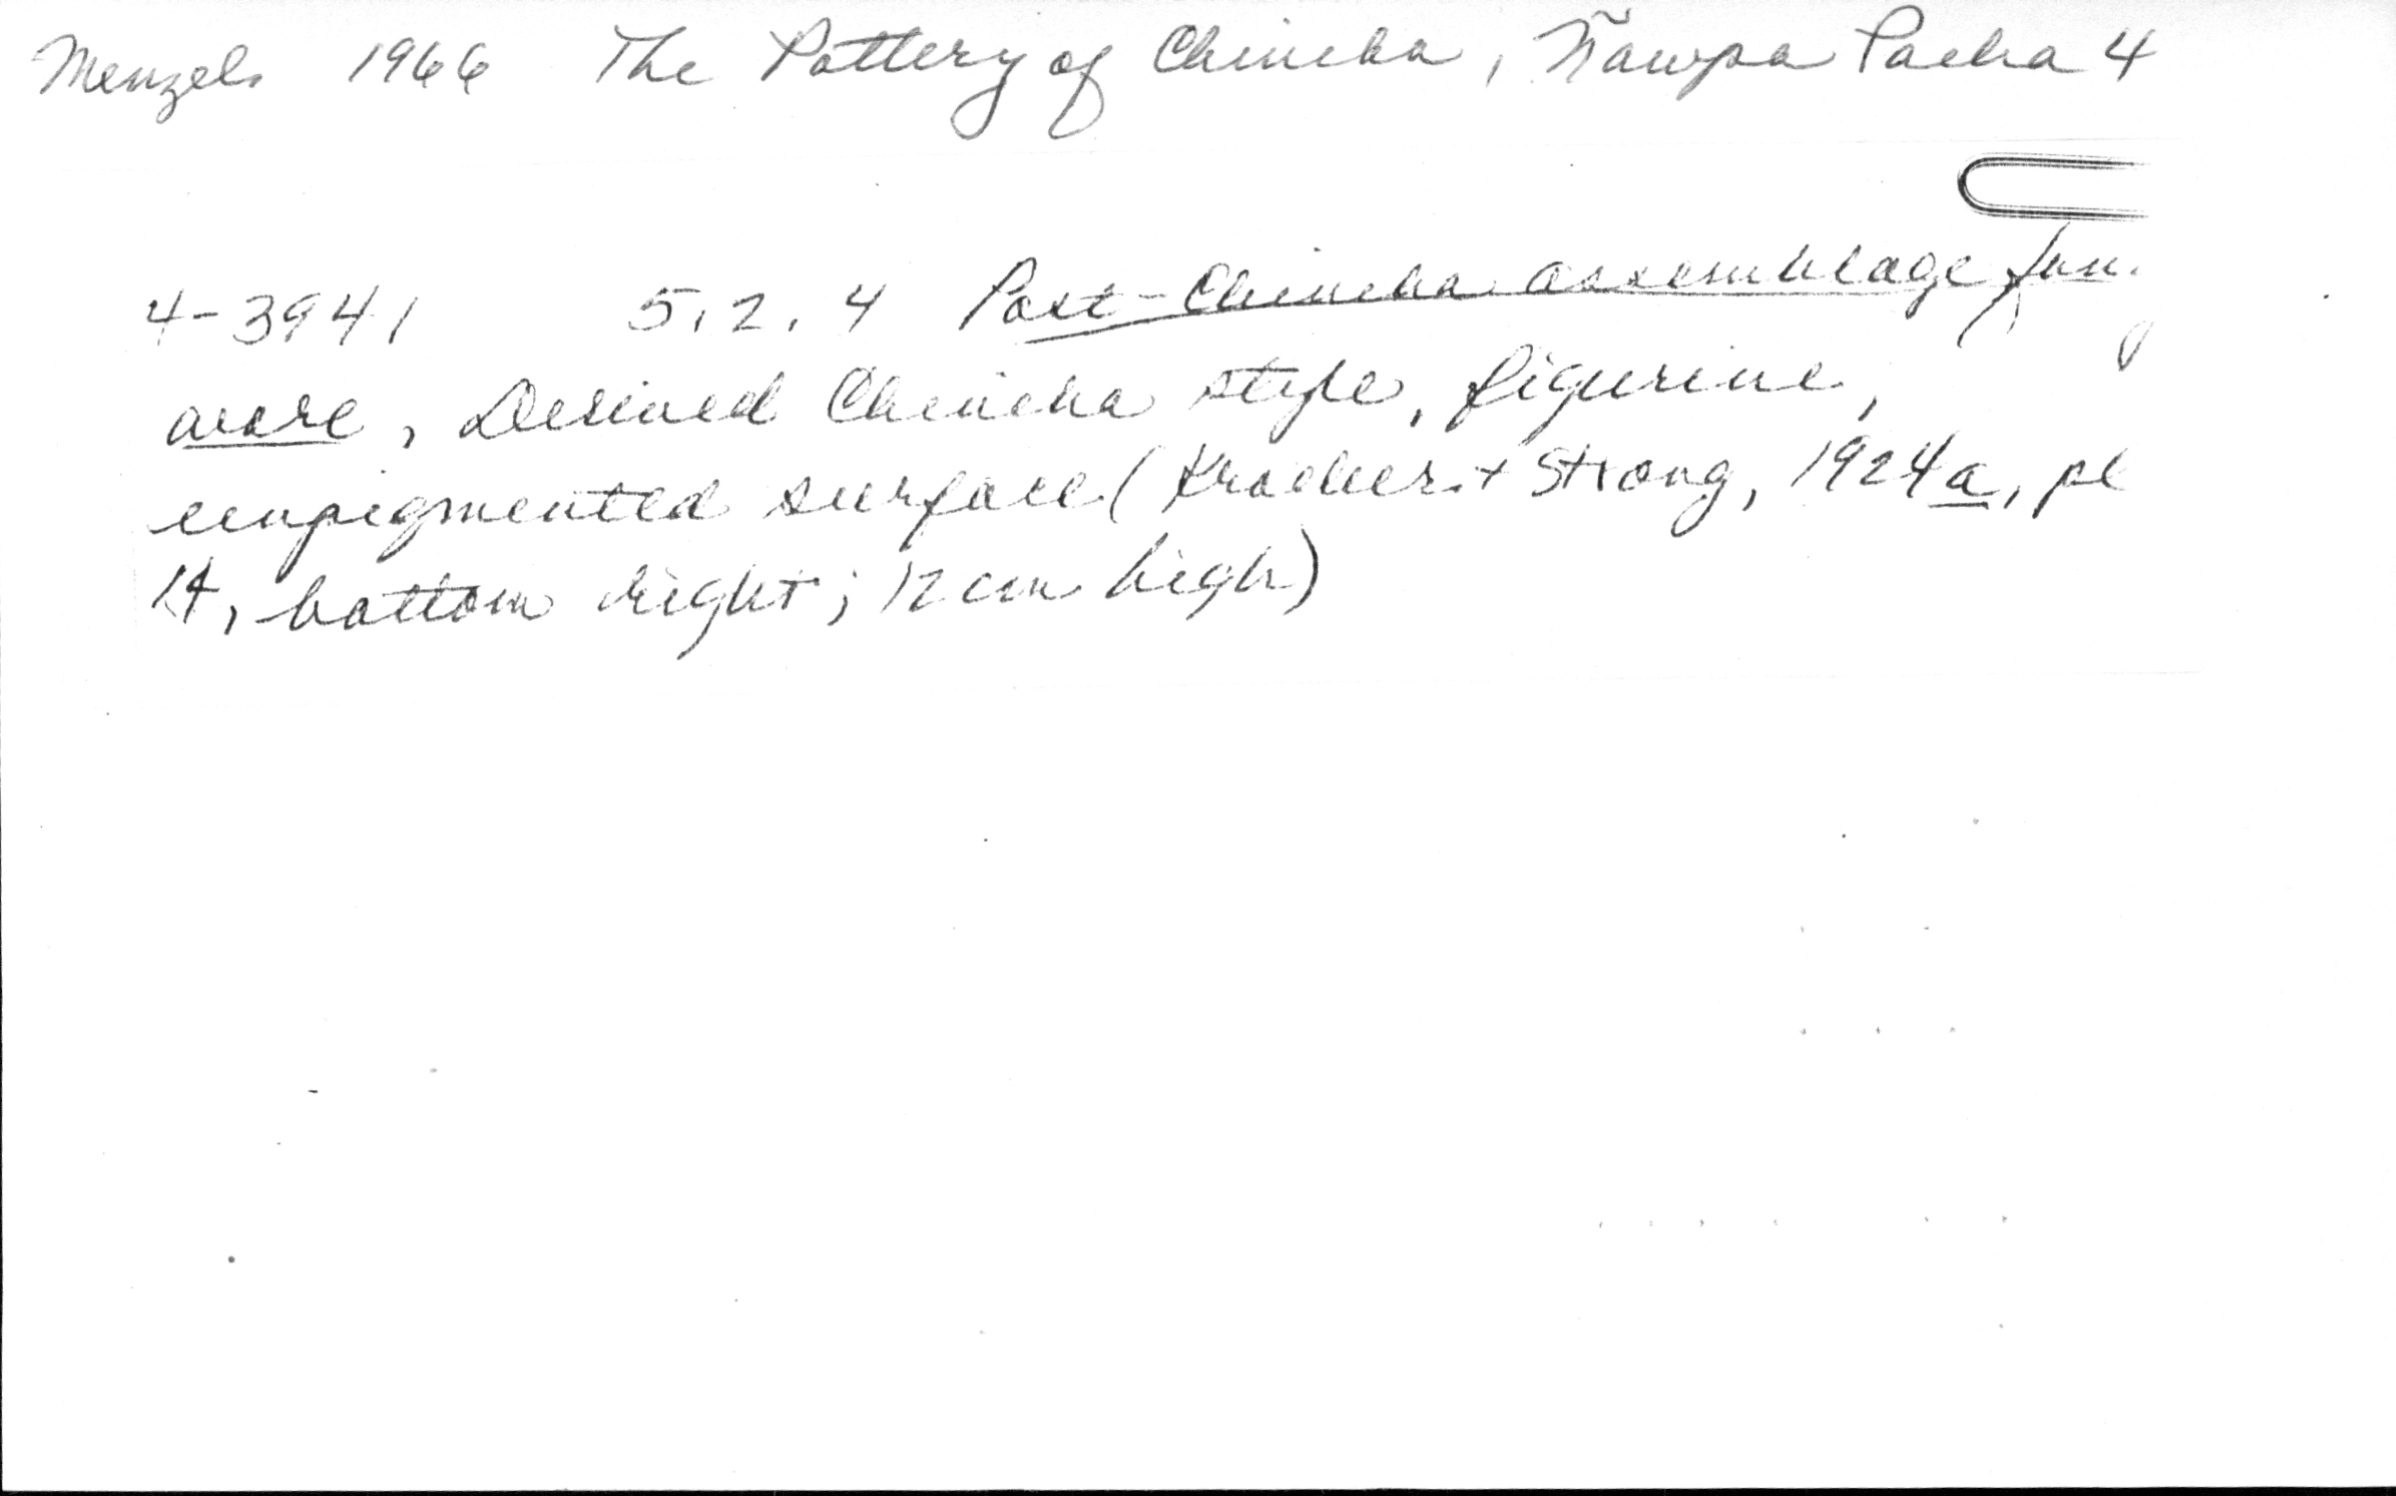 Menzel 1966 The Pottery of Chincha, Ñawpa Pacha 4
4-3941 5.2.4 Post-Chincha assemblage
ware, Derived Chincha style, figurine,
unpigmented surface (Kroeber + Strong, 1924a, pl
14, bottom right; 12 cm high)